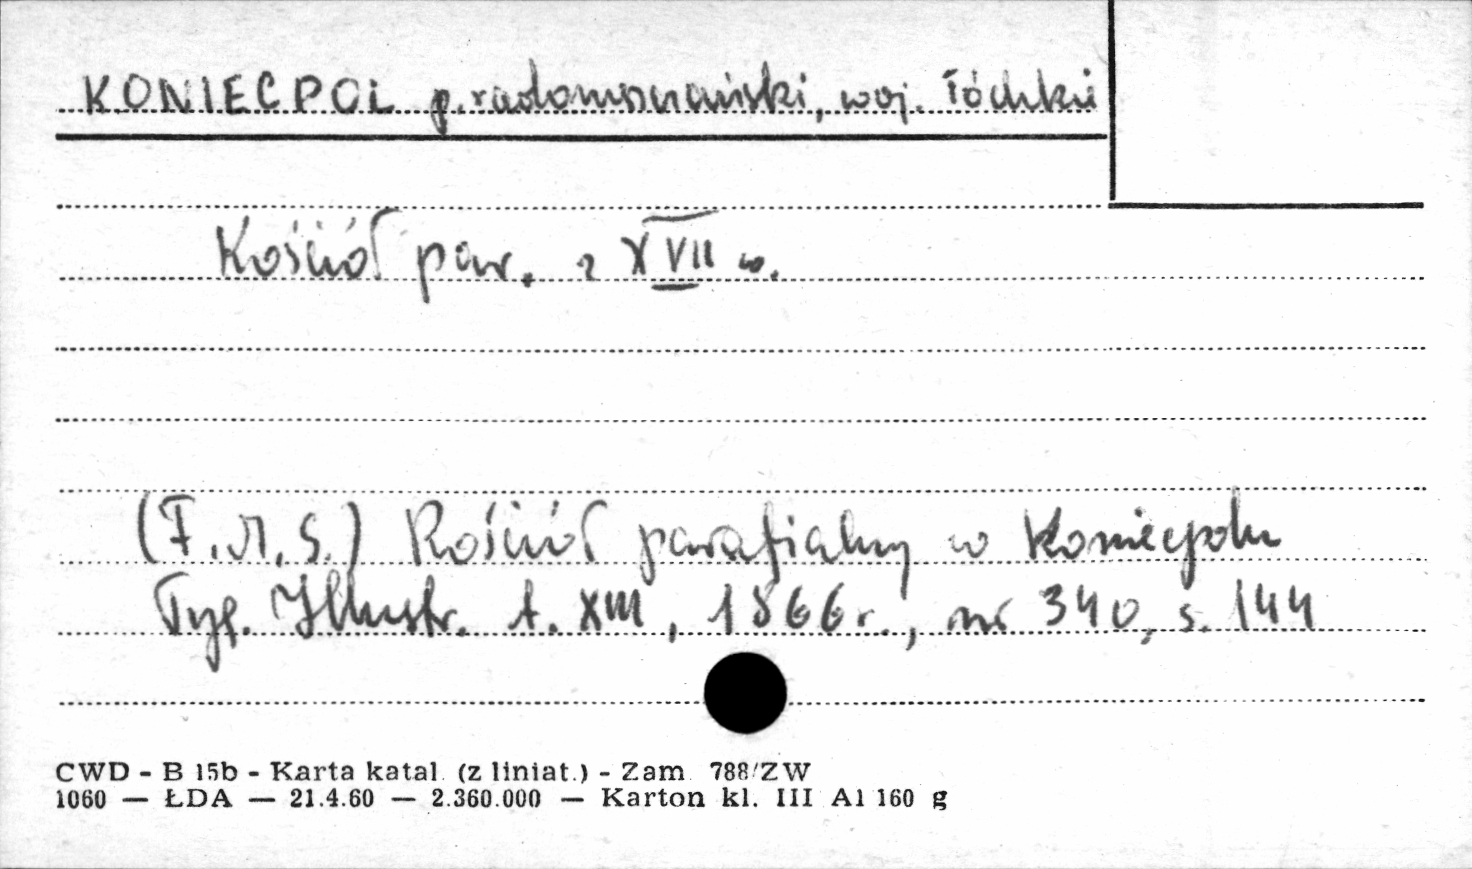 KONIECPOL p. radomszczański, woj. łódzkie
Kościół par. z XVII w.
(F.M.S.) Kościół parafialny w Koniecpolu
Tyg. Illustr. t. XIII, 1866 r., nr 340, s. 144
CWD - B 15b - Karta katal. (z liniat.) - Zam. 788/ZW
1060 — ŁDA — 21.4.60 — 2.360.000 — Karton kl. III A1 160 g